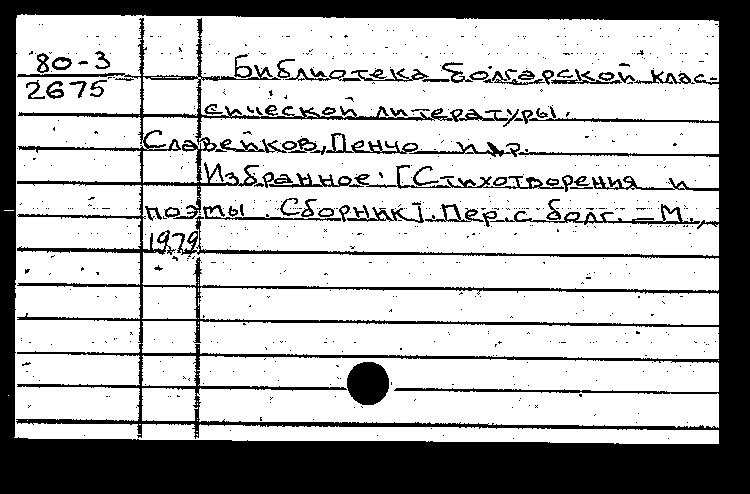 80-3
2675
Библиотека болгарской клас-
сической литературы.
Славейков, Пенчо и др.
Избранное: [Стихотворения и
поэты. Сборник]. Пер. с болг. – М.,
1979